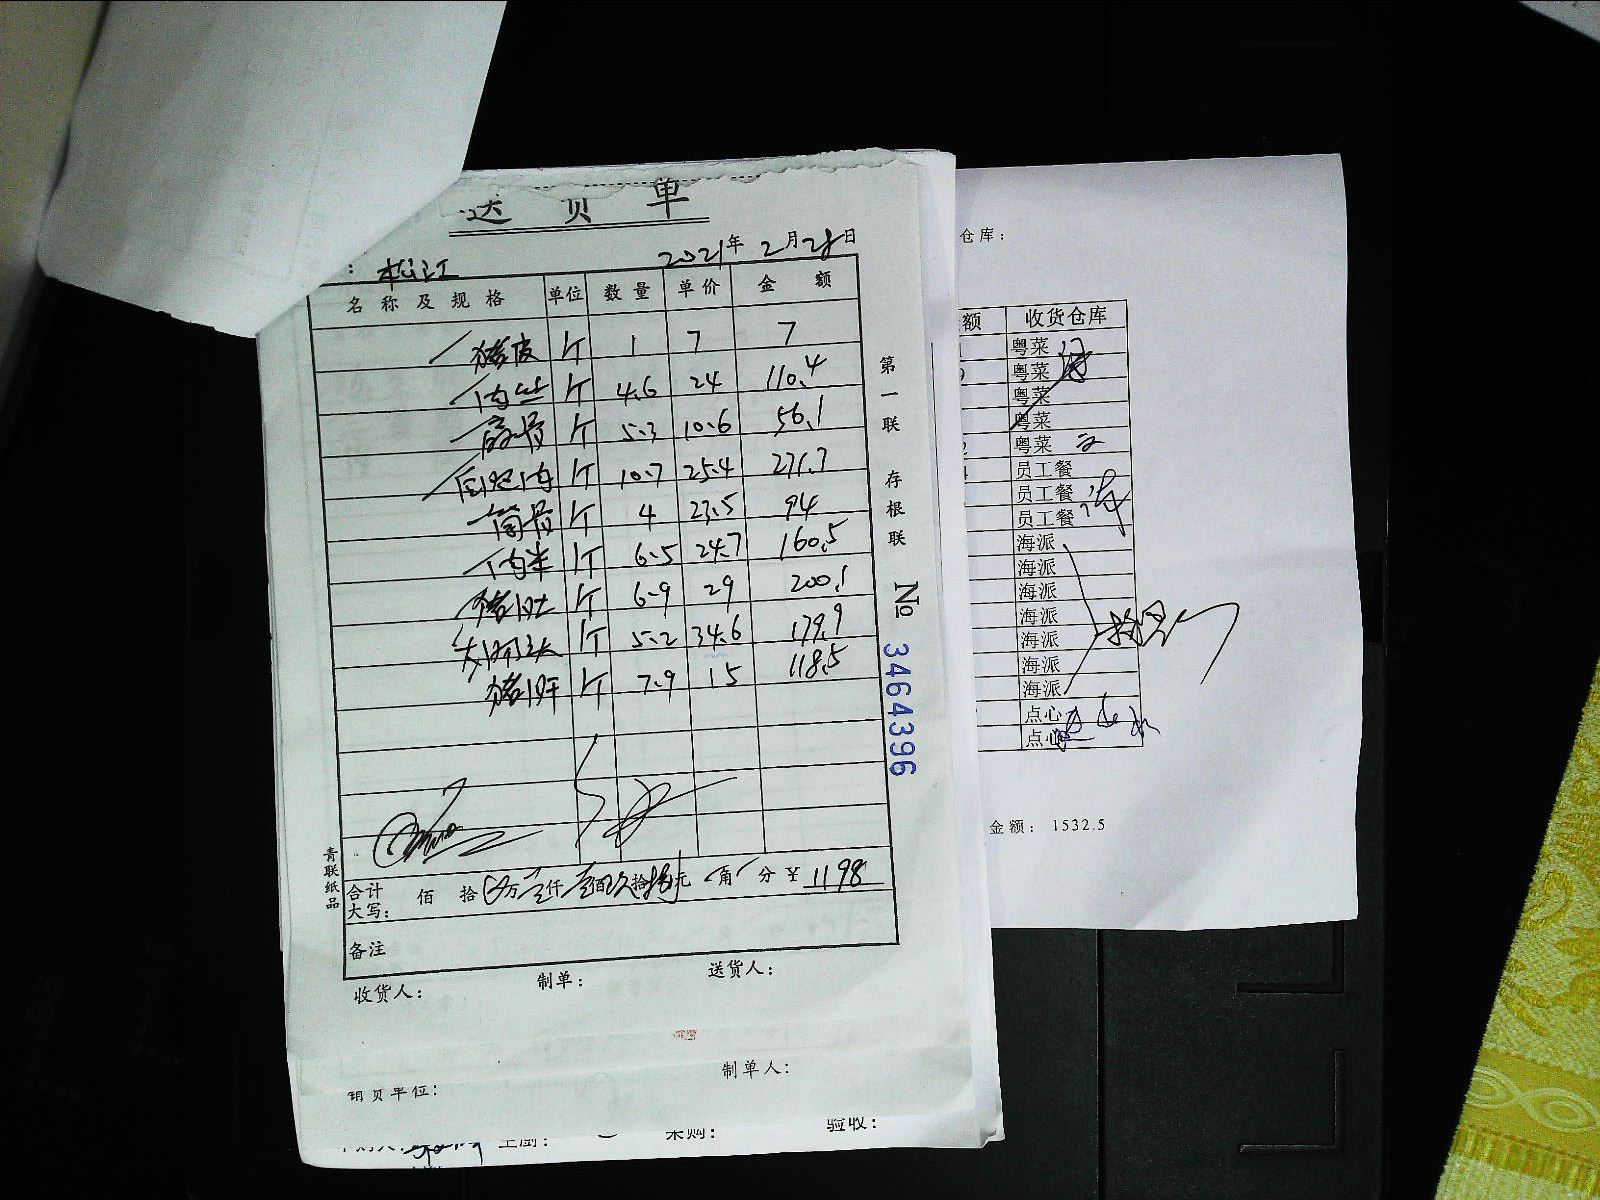 送货单
: 松江 2021年2月28日
名称及规格 单位 数量 单价 金额
猪皮 斤 1 7 7
肉丝 斤 4.6 24 110.4
斤 5.3 10.6 56.1
肉 斤 10.7 25.4 271.7
筒骨 斤 4 23.5 94
肉米 斤 6.5 24.7 160.5
猪肚 斤 6.9 29 200.1
斤 5.2 34.6 179.9
猪肝 斤 7.9 15 118.5
合计
大写: 佰 拾 万壹仟壹佰玖拾捌元 角 分 ¥ 1198
备注
收货人: 制单: 送货人:
第一联 存根联
№ 3464396
青联纸品
制单人:
销货单位:
主厨: 采购: 验收:
仓库:
额 收货仓库
粤菜
粤菜
粤菜
粤菜
粤菜
员工餐
员工餐
员工餐
海派
海派
海派
海派
海派
海派
海派
点心
点心
金额: 1532.5